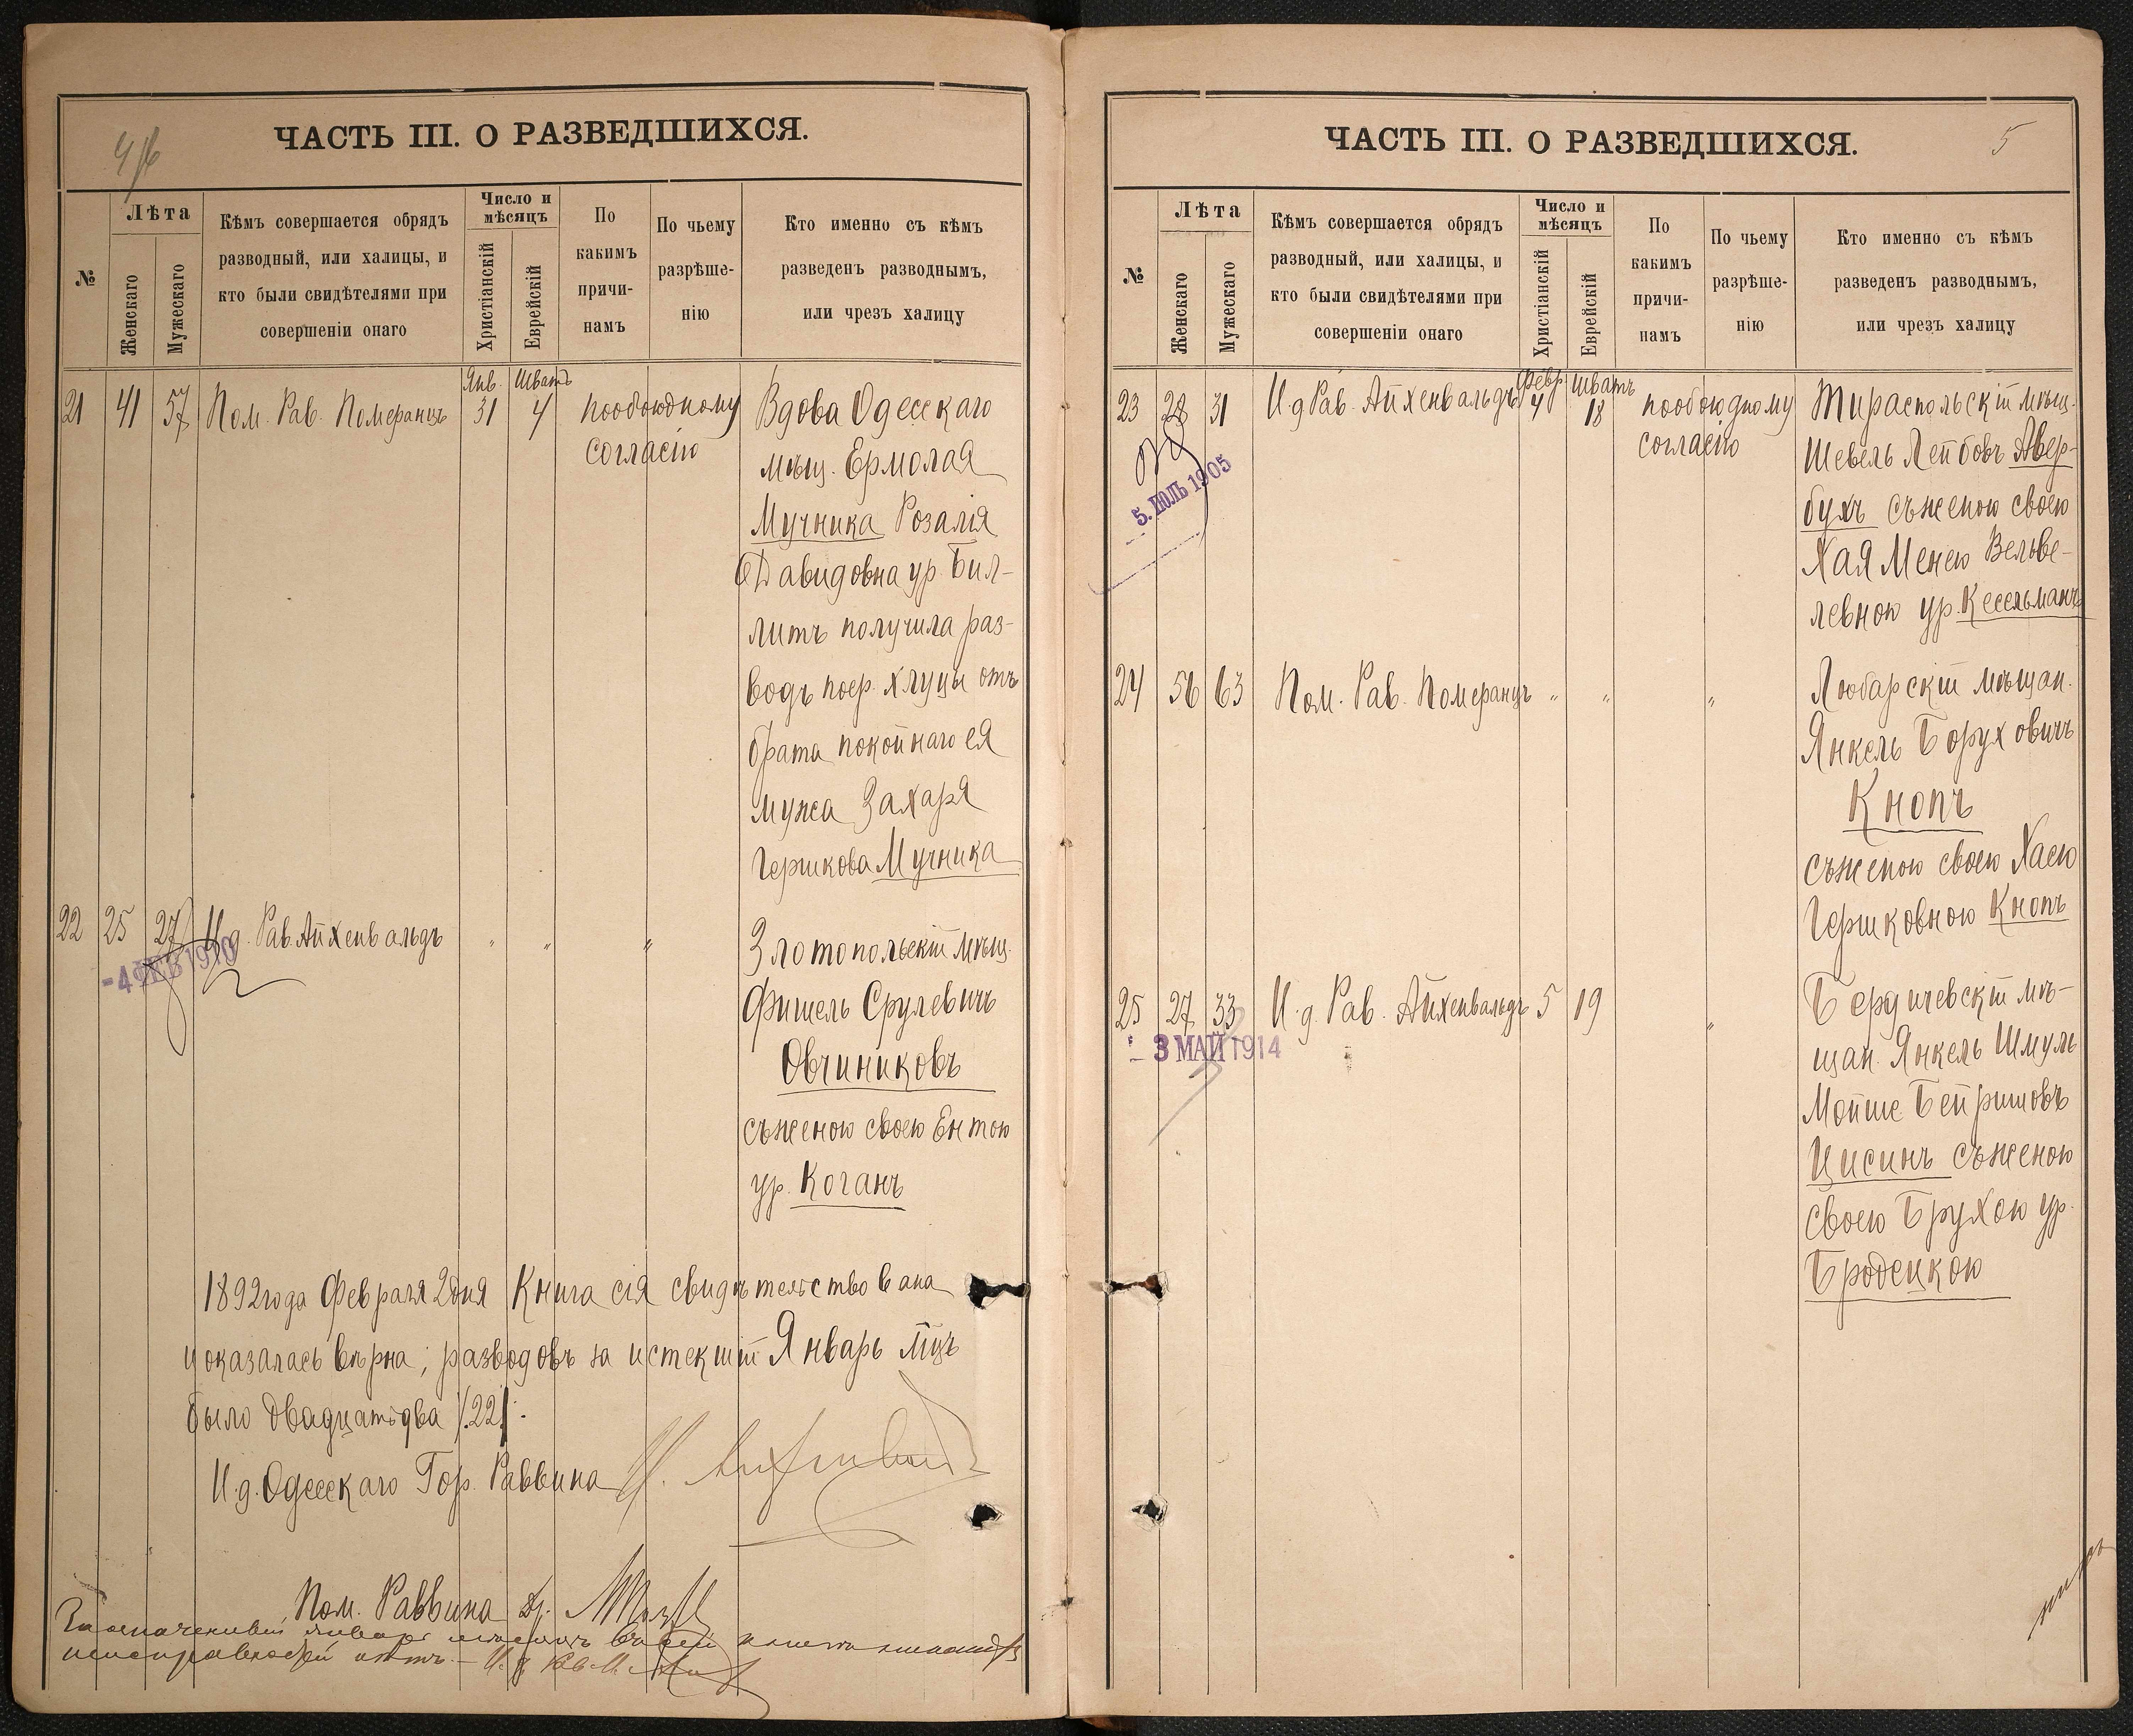 ЧАСТЬ III. О РАЗВЕДШИХСЯ.
№
Лѣта
Женскаго
Мужескаго
Кѣмъ совершается обрядъ
разводный, или халицы, и
кто были свидѣтелями при
совершеніи онаго
Число и
мѣсяцъ
Христіанскій
Еврейскій
По
какимъ
причи-
намъ
По чьему
разрѣше-
нію
Кто именно съ кѣмъ
разведенъ разводнымъ,
или чрезъ халицу
Янв. Шватъ
21 41 57 Пом. Рав. Померанцъ 31 4 пообоюдному
согласію
Вдова Одесскаго
мѣщ. Ермолая
Мучника Розалія
Давидовна ур. Бил-
литъ получила раз-
водъ поср. хлуцы отъ
брата покойнаго ея
мужа Захаря
Гершкова Мучника
22 25 27 И.д. Рав. Айхенвальдъ " " "
-4 ФЕВ 1910
Злотопольскій мѣщ.
Фишель Срулевичъ
Овчиниковъ
съженою своею Ентою
ур. Коганъ
1892 года Февраля 2 дня Книга сія свидѣтельствована
и оказалась вѣрна; разводовъ за истекшій Январь мцъ
было двадцать два /.22/.
И.д. Одесскаго Гор. Раввина
Пом. Раввина Др.
ЧАСТЬ III. О РАЗВЕДШИХСЯ.
5
№
Лѣта
Женскаго
Мужескаго
Кѣмъ совершается обрядъ
разводный, или халицы, и
кто были свидѣтелями при
совершеніи онаго
Число и
мѣсяцъ
Христіанскій
Еврейскій
По
какимъ
причи-
намъ
По чьему
разрѣше-
нію
Кто именно съ кѣмъ
разведенъ разводнымъ,
или чрезъ халицу
Февр. Шватъ
23 28 31 И.д Рав. Айхенвальдъ 4 18 пообоюдному
согласію
5. ІЮЛЬ 1905
Тираспольскій мѣщ.
Шевель Лейбовъ Авер-
бухъ съженою своею
Хая Менею Вельве-
левною ур. Кесельманъ
24 56 63 Пом. Рав. Померанцъ " " "
Любарскій мѣщан.
Янкель Борух овичъ
Кнопъ
съженою своею Хаею
Гершковною Кнопъ
25 27 33 И.д. Рав. Айхенвальдъ 5 19 "
- 3 МАЙ 1914
Бердичевскій мѣ-
щан. Янкель Шмуль
Мойше Бейришовъ
Цисинъ съженою
своею Брухою ур.
Бродецкою